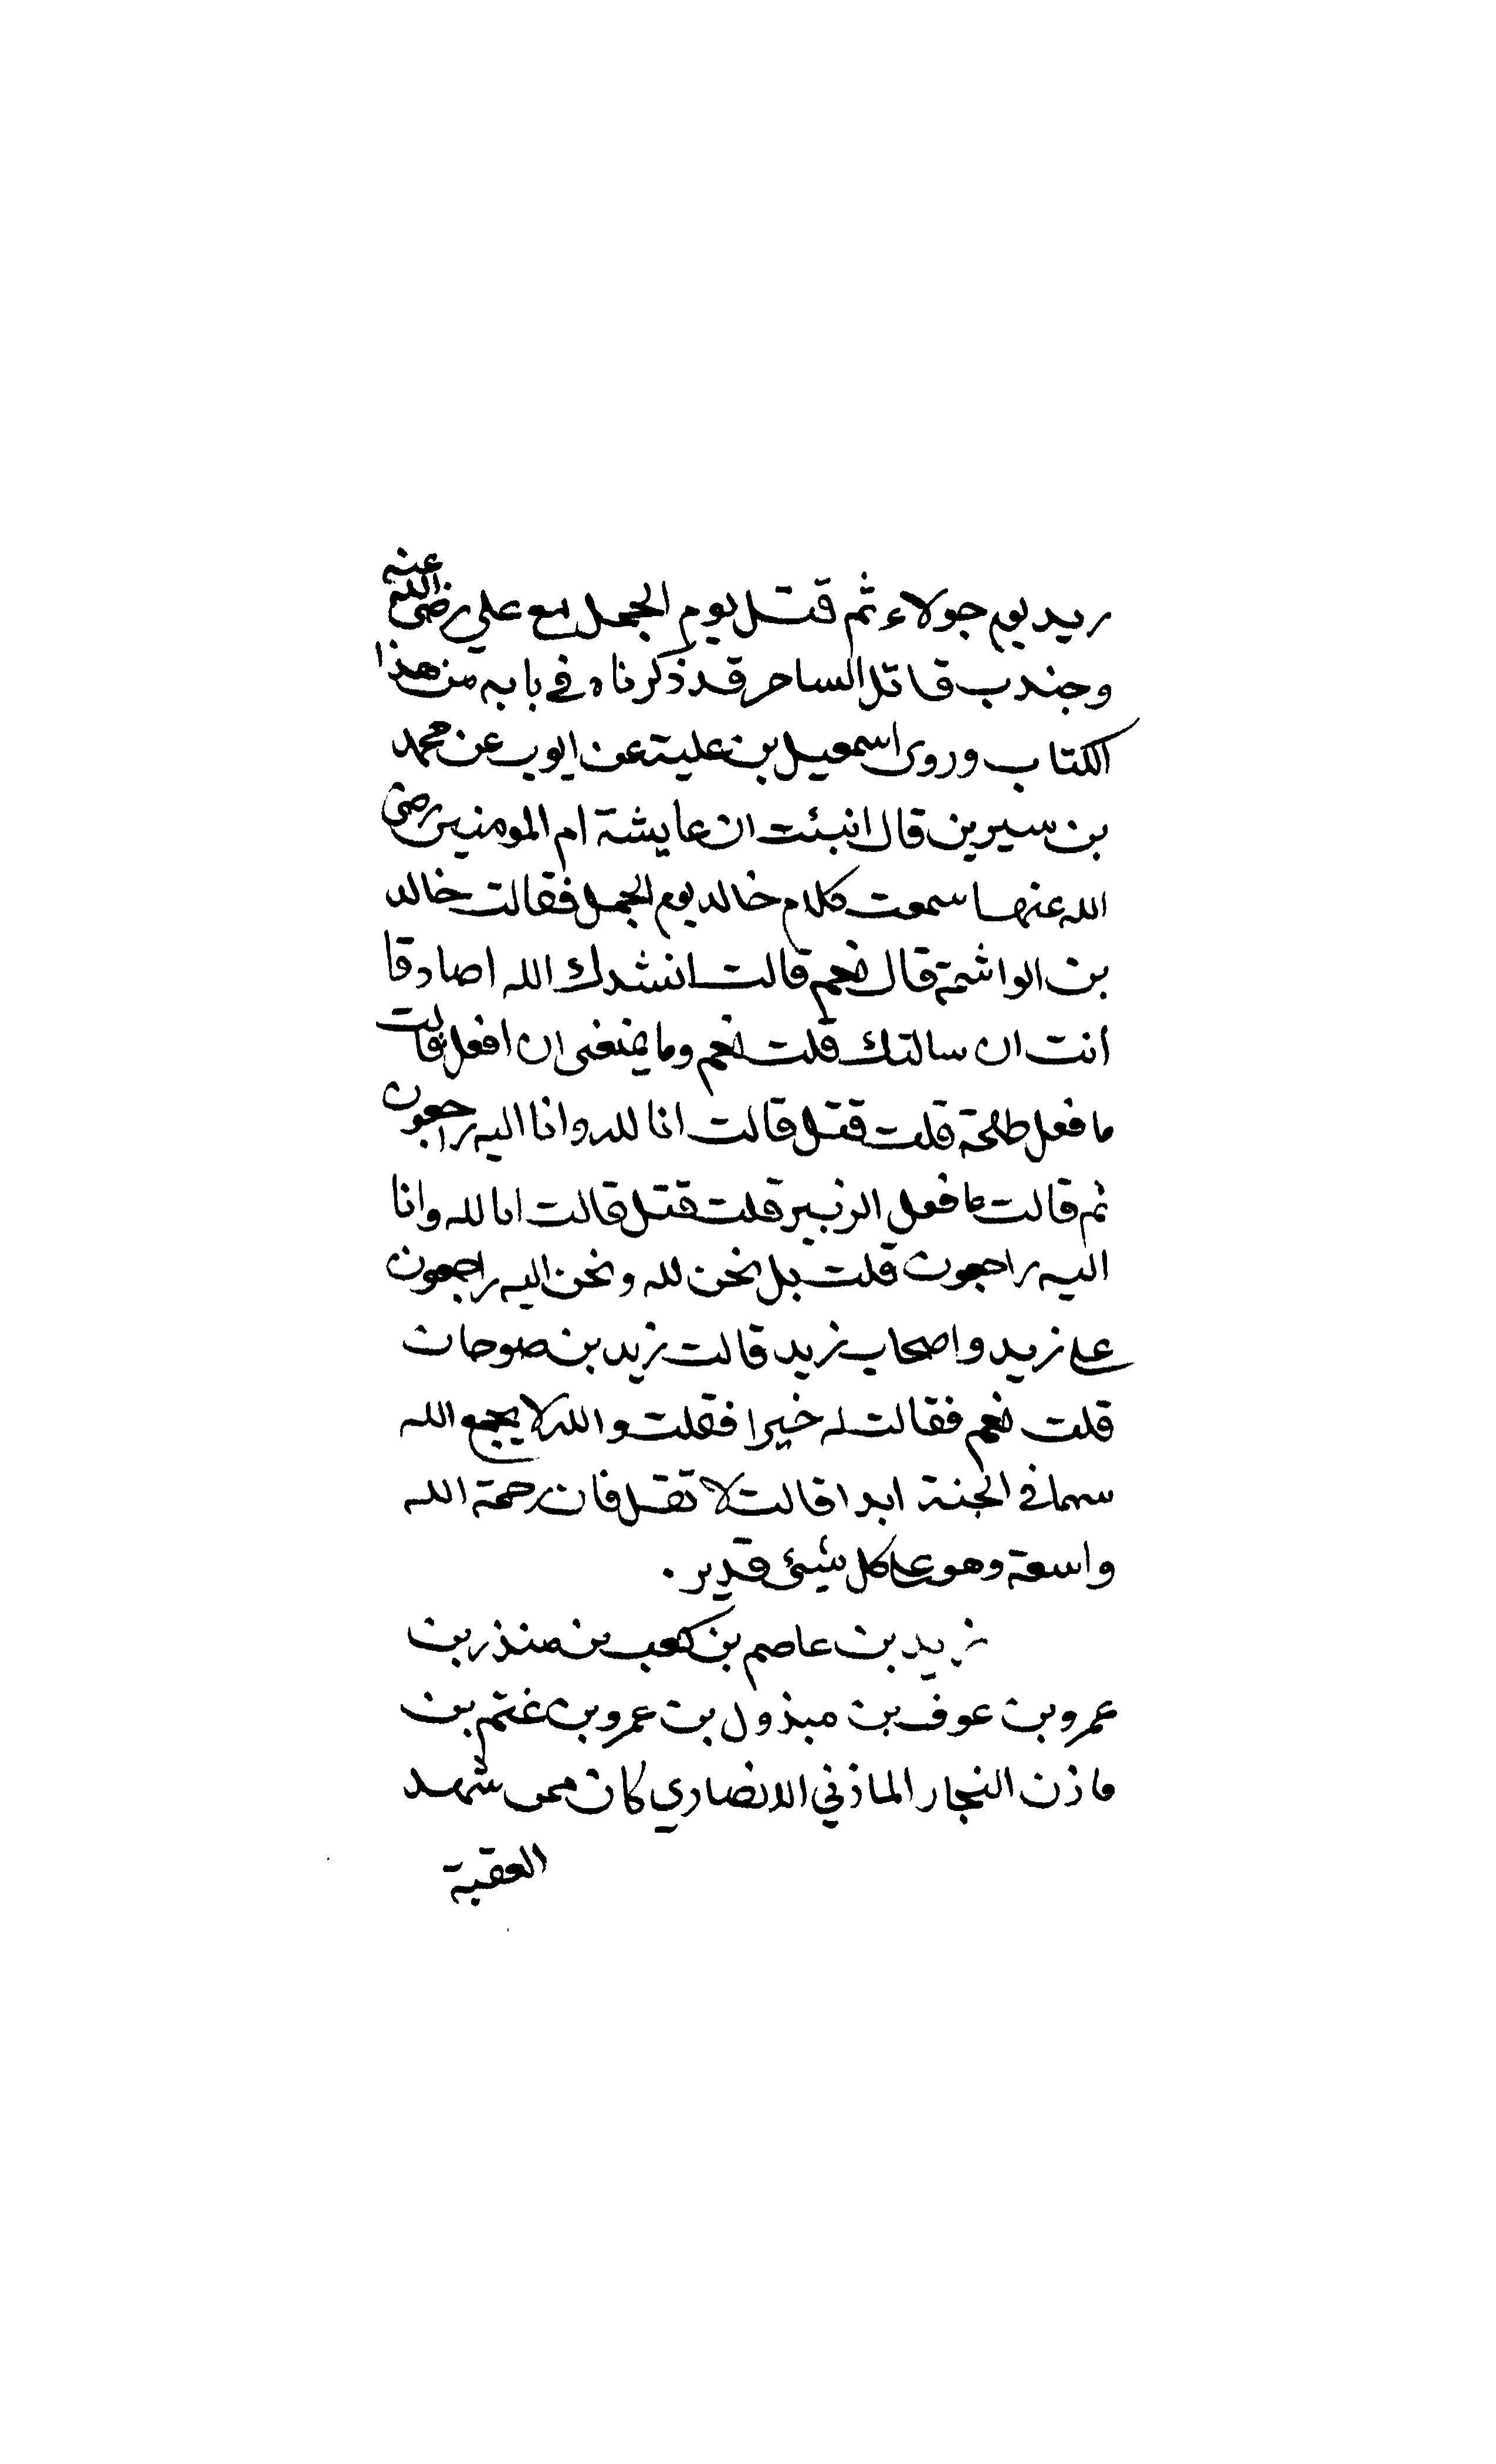 ريد يوم جولاء ثم قتل يوم الجمل مع علي رضي الله عنه
وجندب قاتل الساحر قد ذكرناه في بابه من هذا
الكتاب وروى اسمعيل بن علية عن ايوب عن محمد
بن سيرين قال انبئت ان عايشة ام المومنين رضي
الله عنها سمعت كلام خالد يوم الجمل فقالت خالد
بن الواشمة قال نعم قالت انشدك الله اصادقا
انت ان سالتك قلت نعم وما يمنعنى ان افعل قالت
ما فعل طلحة قلت قتل قالت انا لله وانا اليه راجعون
ثم قالت ما فعل الزبير قلت قتل قالت انا لله وانا
اليه راجعون قلت بل نحن لله ونحن اليه راجعون
على زيد واصحاب زيد قالت زيد بن صوحان
قلت نعم فقالت له خيرا فقلت والله لا يجمع الله
سهما في الجنة ابدا قالت لا تقل فان رحمة الله
واسعة وهو على كل شيئ قدير .
زيد بن عاصم بن كعب بن منذر بن
عمرو بن عوف بن مبذول بن عمرو بن غتم بن
ماذن النجار الماذني الانصاري كان ممن شهد
العقبة